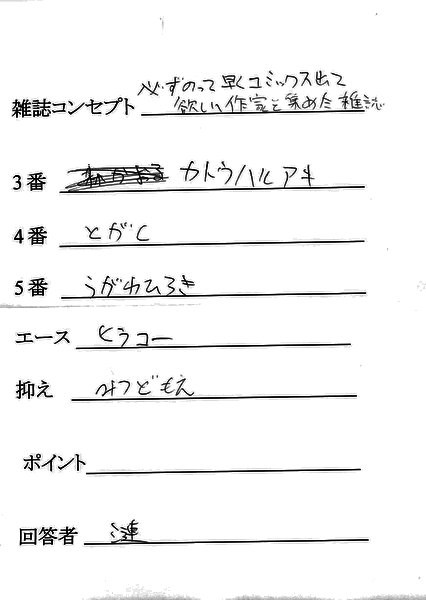 必ずのって早くコミックス出て
雑誌コンセプト 欲しい作家を集めた雑誌
3番 カトウハルアキ
4番 とがし
5番 うがわひろき
エース とうコー
抑え みつどもえ
ポイント
回答者 漣